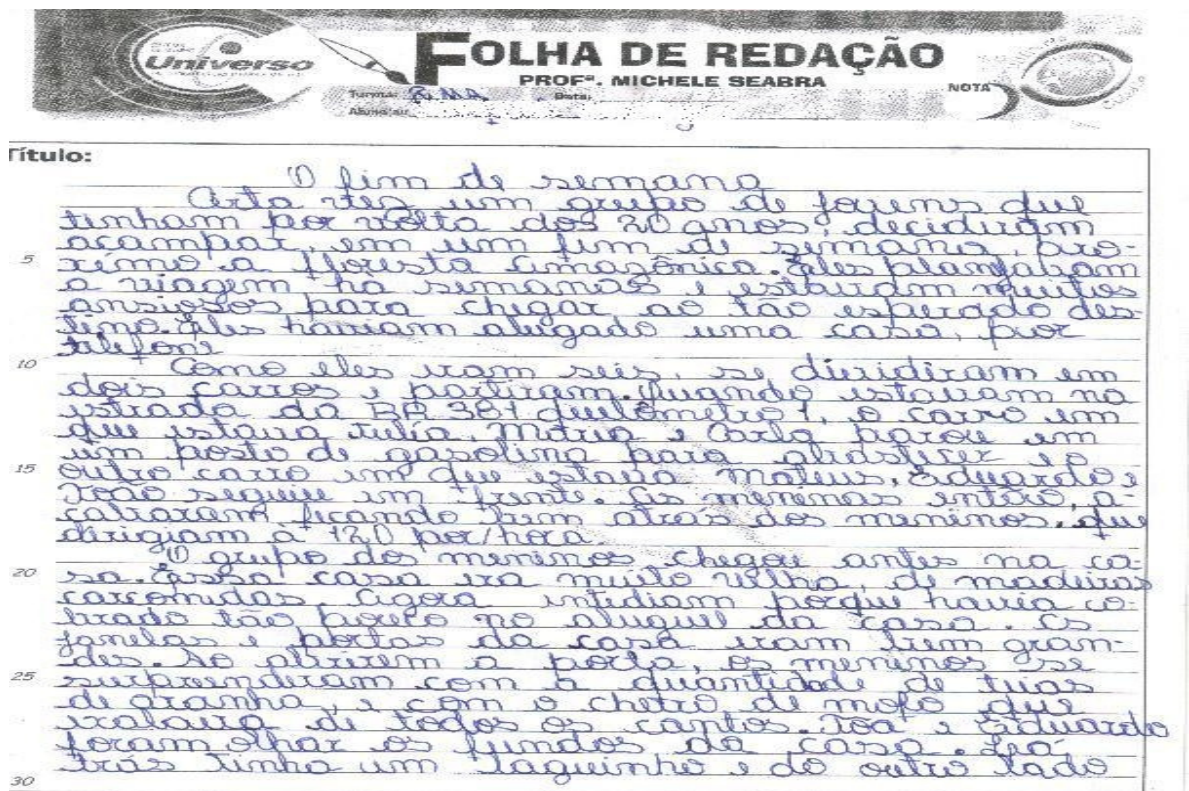 Universo
FOLHA DE REDAÇÃO
PROFª. MICHELE SEABRA
NOTA
Turma: Data:
Título:
O fim de semana
Certa vez um grupo de jovens que
tinham por volta dos 20 anos, decidiram
acampar, em um fim de semana, pro-
5 ximo a floresta Amazônica. Eles planejavam
a viagem há semanas e estavam muitos
ansiosos para chegar ao tão esperado des-
tino. Eles haviam alugado uma casa, por
telefone
10 Como eles eram seis, se dividiram em
dois carros e partiram. Quando estavam na
estrada da BR 381 quilômetro 1, o carro em
que estava Julia, Maria e Carla parou em
um posto de gasolina para abastecer e o
15 outro carro em que estava Mateus, Eduardo e
João seguiu em frente. As meninas então, a-
cabaram ficando bem atrás dos meninos, que
dirigiam a 120 por/hora.
O grupo dos meninos chegou antes na ca-
20 sa. Essa casa era muito velha, de madeiras
carcomidas. Agora entediam porque havia co-
brado tão pouco no aluguel da casa. As
janelas e portas da casa eram bem gran-
des. Ao abrirem a porta, os meninos se
25 surpreenderam com a quantidade de teias
de aranha, e com o cheiro de mofo que
exalava de todos os cantos. Joa e Eduardo
foram olhar os fundos da casa. Lá
trás tinha um laguinho e do outro lado
30